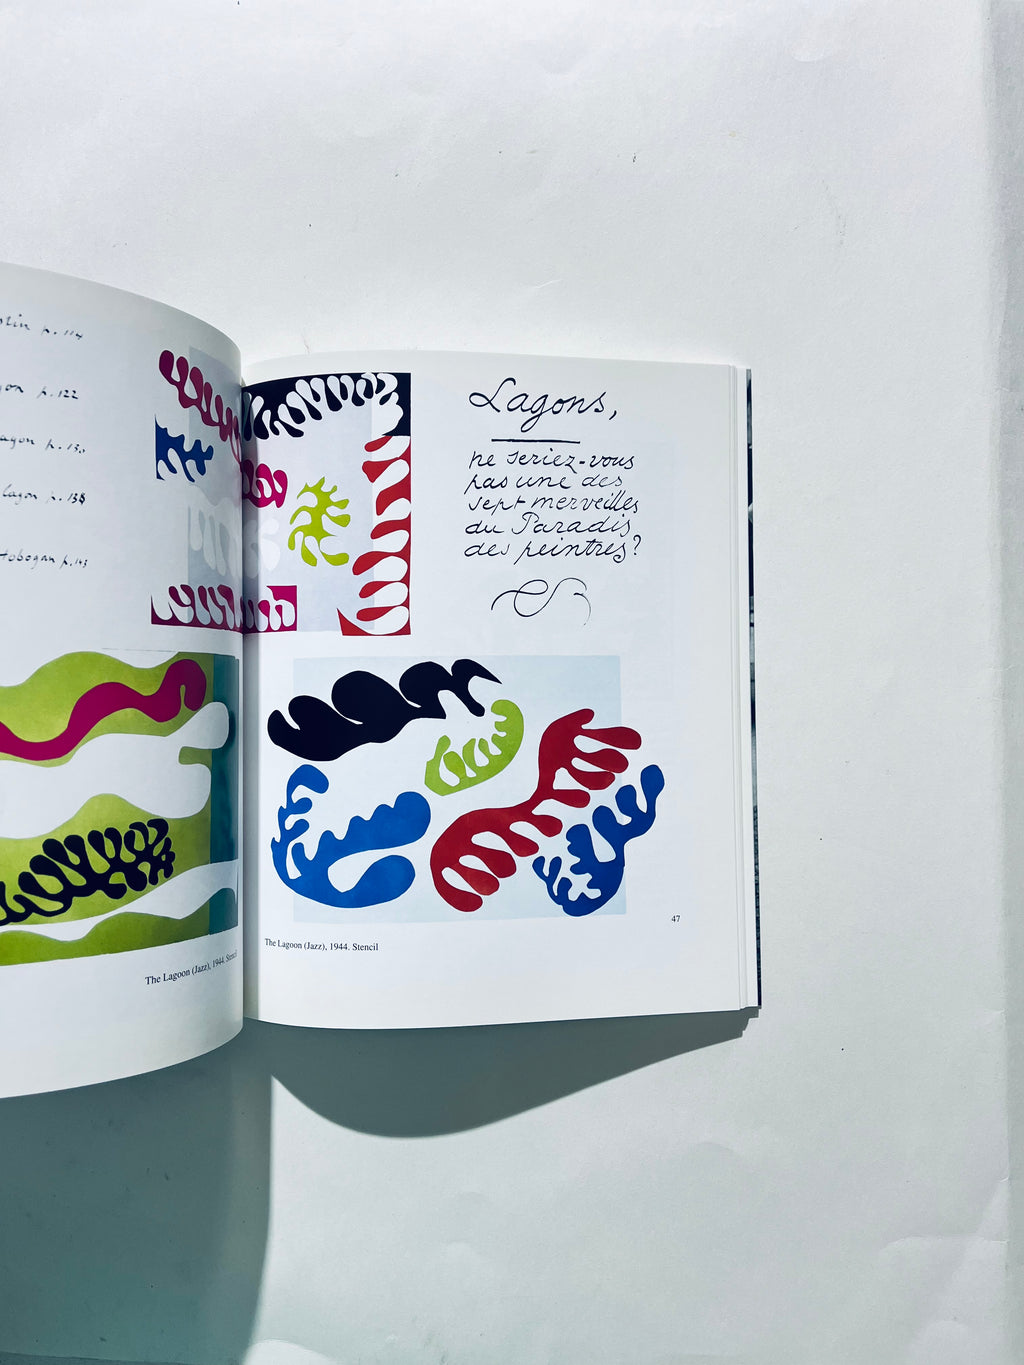 p. 114
p. 122
p. 130
lagon p. 138
tobogan p. 143
The Lagoon (Jazz), 1944. Stencil
Lagons,
ne seriez-vous
pas une des
sept merveilles
du Paradis
des peintres?
47
The Lagoon (Jazz), 1944. Stencil